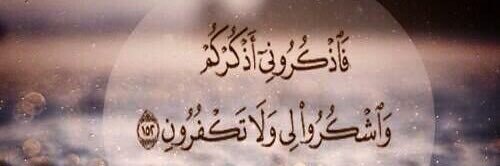 فَٱذۡكُرُونِيٓ أَذۡكُرۡكُمۡ
وَٱشۡكُرُواْ لِي وَلَا تَكۡفُرُونِ ١٥٢